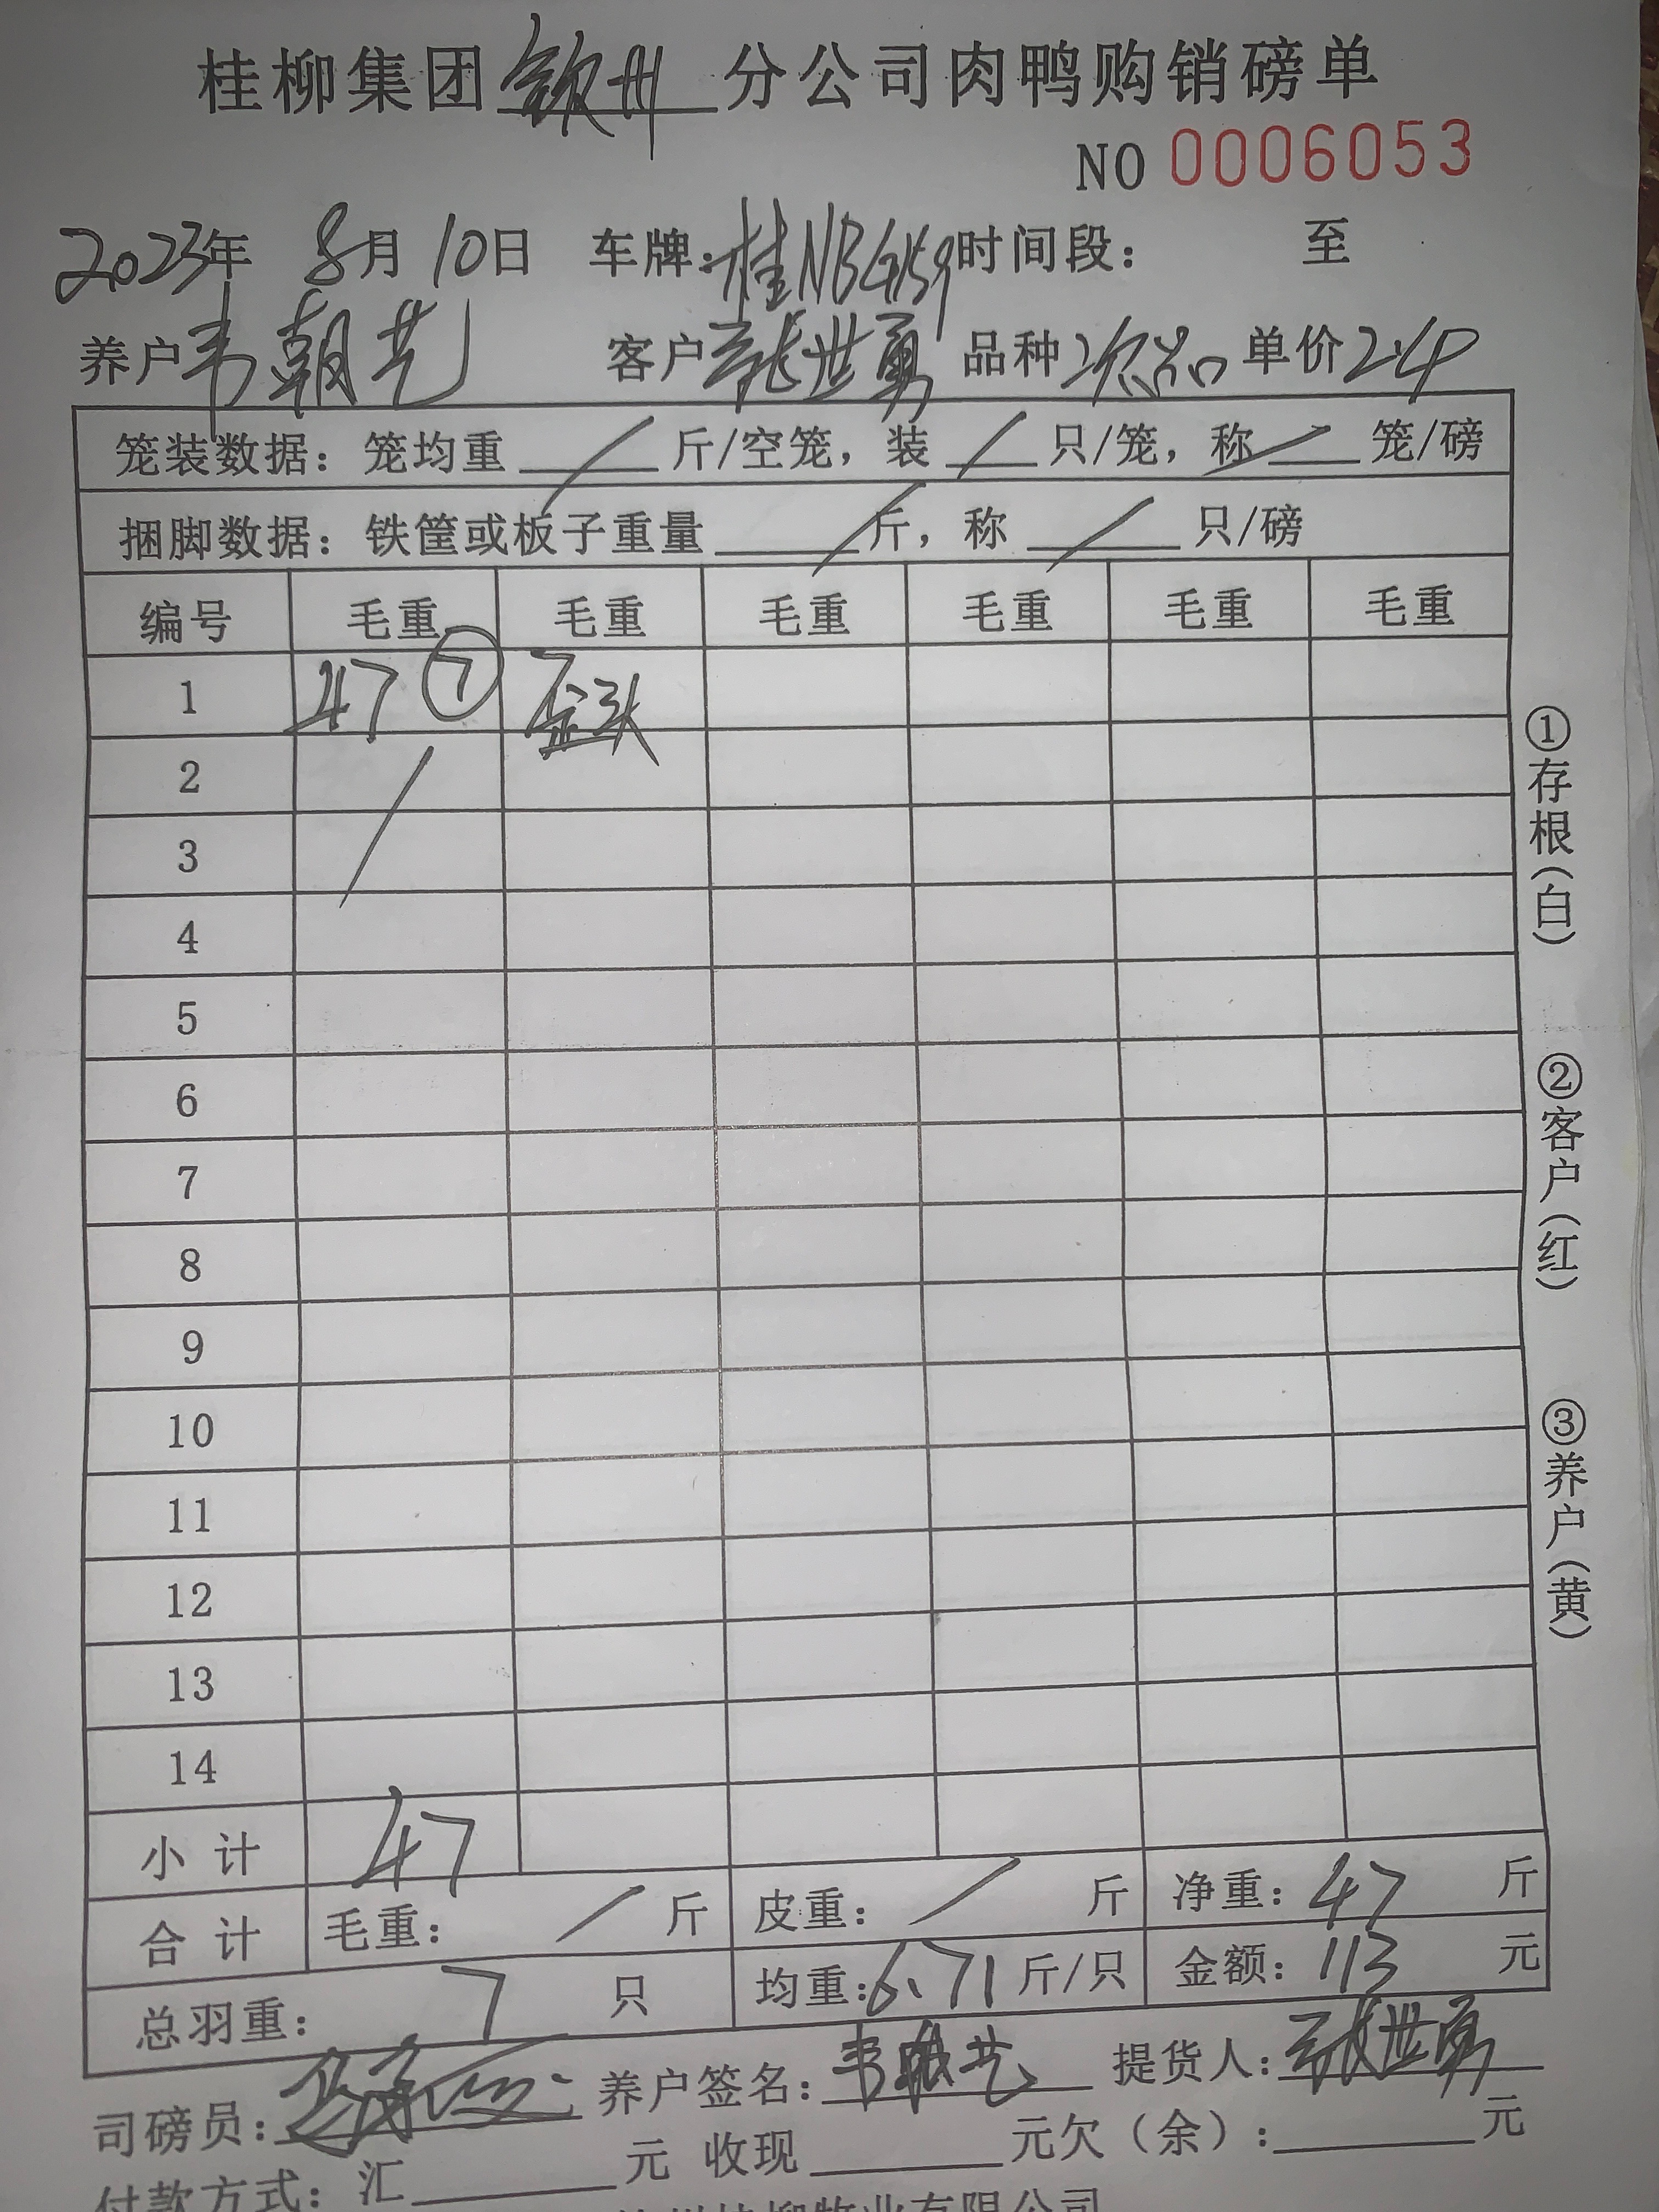 桂柳集团钦州分公司肉鸭购销磅单
NO 0006053
2023年 8月10日 车牌:桂NB 时间段: 至
养户韦朝艺 客户张世勇 品种次品 单价2.4
笼装数据: 笼均重 / 斤/空笼, 装 / 只/笼, 称 / 笼/磅
捆脚数据: 铁筐或板子重量 / 斤, 称 / 只/磅
编号 毛重 毛重 毛重 毛重 毛重 毛重
1 47 ⑦ 歪头
2 /
3
4
5
6
7
8
9
10
11
12
13
14
小计 47
合计 毛重: / 斤 皮重: / 斤 净重: 47 斤
总羽重: 7 只 均重:6.71斤/只 金额: 113 元
司磅员: 养户签名:韦朝艺 提货人:张世勇
付款方式: 汇 元 收现 元欠(余): 元
桂柳牧业有限公司
①存根(白)
②客户(红)
③养户(黄)